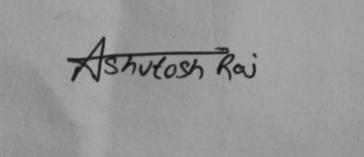 Ashutosh Raj